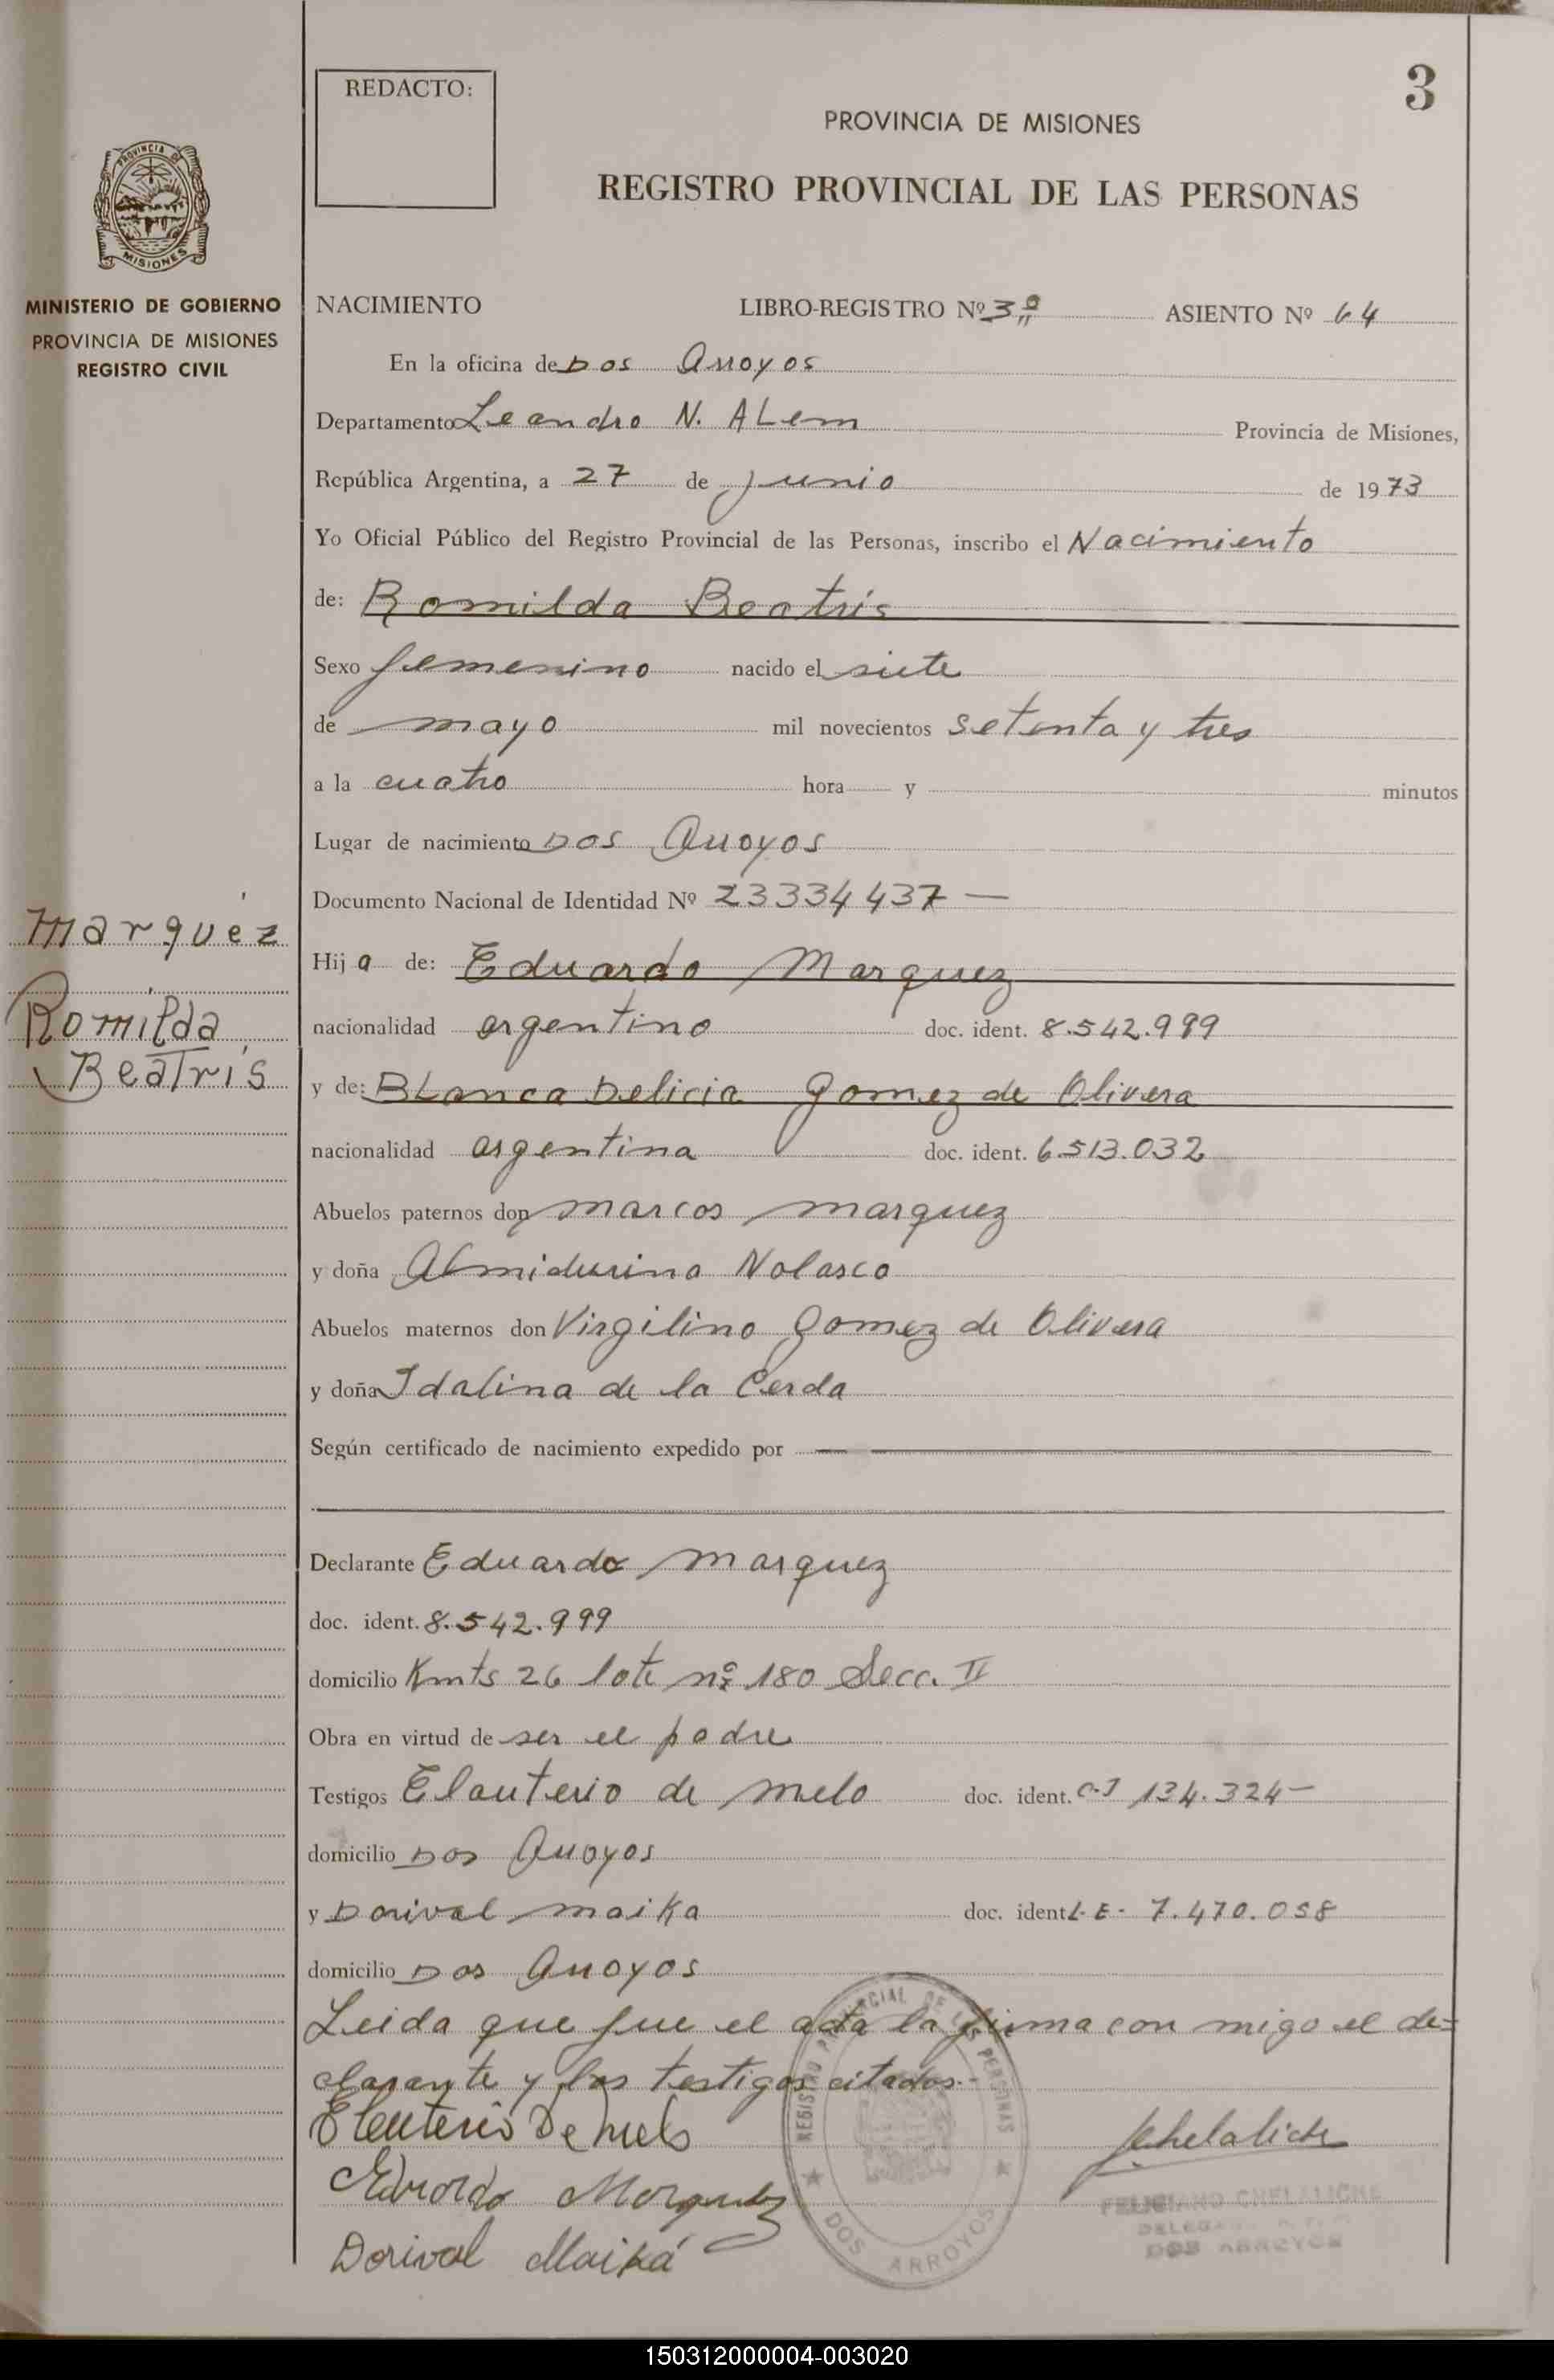 3
REDACTO:
PROVINCIA DE MISIONES
REGISTRO PROVINCIAL DE LAS PERSONAS
PROVINCIA DE
MISIONES
MINISTERIO DE GOBIERNO
PROVINCIA DE MISIONES
REGISTRO CIVIL
NACIMIENTO LIBRO-REGISTRO Nº 3º ASIENTO Nº 64
En la oficina de Dos Arroyos
Departamento Leandro N. ALem Provincia de Misiones,
República Argentina, a 27 de junio de 1973
Yo Oficial Público del Registro Provincial de las Personas, inscribo el Nacimiento
de: Romilda Beatris
Sexo femenino nacido el siete
de mayo mil novecientos setenta y tres
a la cuatro hora y minutos
Lugar de nacimiento Dos Arroyos
Documento Nacional de Identidad Nº 23334437 —
Marquéz
Romilda
Beatrís
Hija de: Eduardo Marquez
nacionalidad argentino doc. ident. 8.542.999
y de: BLanca Delicia Gomez de Olivera
nacionalidad argentina doc. ident. 6.513.032
Abuelos paternos don Marcos Marquez
y doña Nolasco
Abuelos maternos don Virgilino Gomez de Olivera
y doña Idalina de la Cerda
Según certificado de nacimiento expedido por
Declarante Eduardo Marquez
doc. ident. 8.542.999
domicilio Kmts 26 lote nº 180 Secc. II
Obra en virtud de ser el padre
Testigos Elauterio de Melo doc. ident. C.I 134.324-
domicilio Dos Arroyos
y Dorival Maika doc. ident L.E- 7.470.058
domicilio Dos Arroyos
Leida que fue el acta la firma con migo el de=
clarante y los testigos citados.-
Eleuterio De Melo
Eduardo Marquez
Dorival Maiká
REGISTRO PROVINCIAL DE LAS PERSONAS
DOS ARROYOS
FELICIANO CHELALICHE
DOS ARROYOS
150312000004-003020